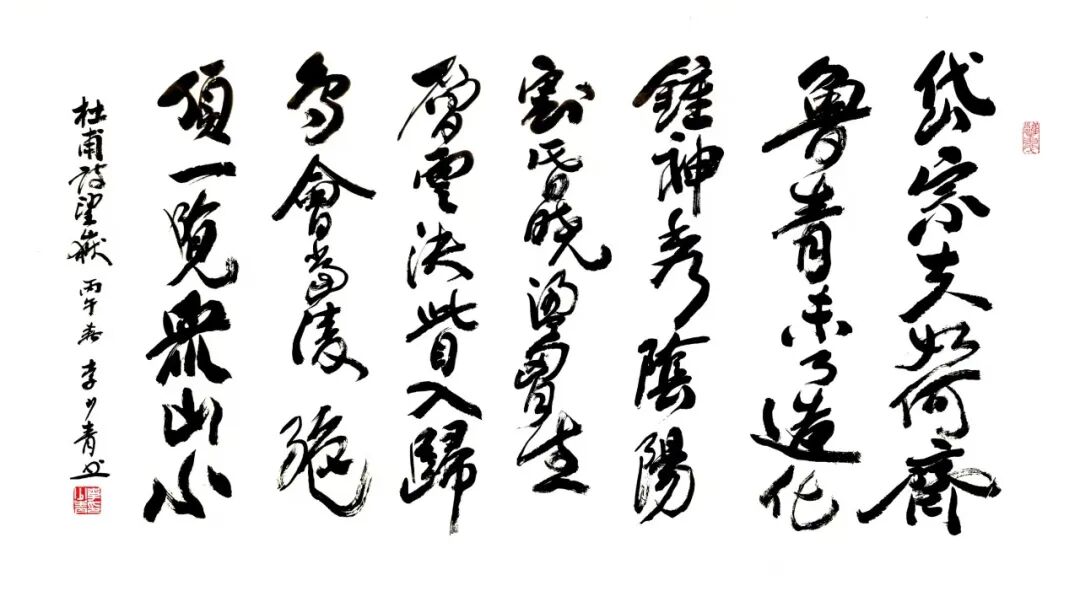 岱宗夫如何齊
魯青未了造化
鍾神秀陰陽
割昏曉盪胷生
層雲決眥入歸
鳥會當凌絶
頂一覽眾山小
杜甫詩望嶽 丙午春 李少青书